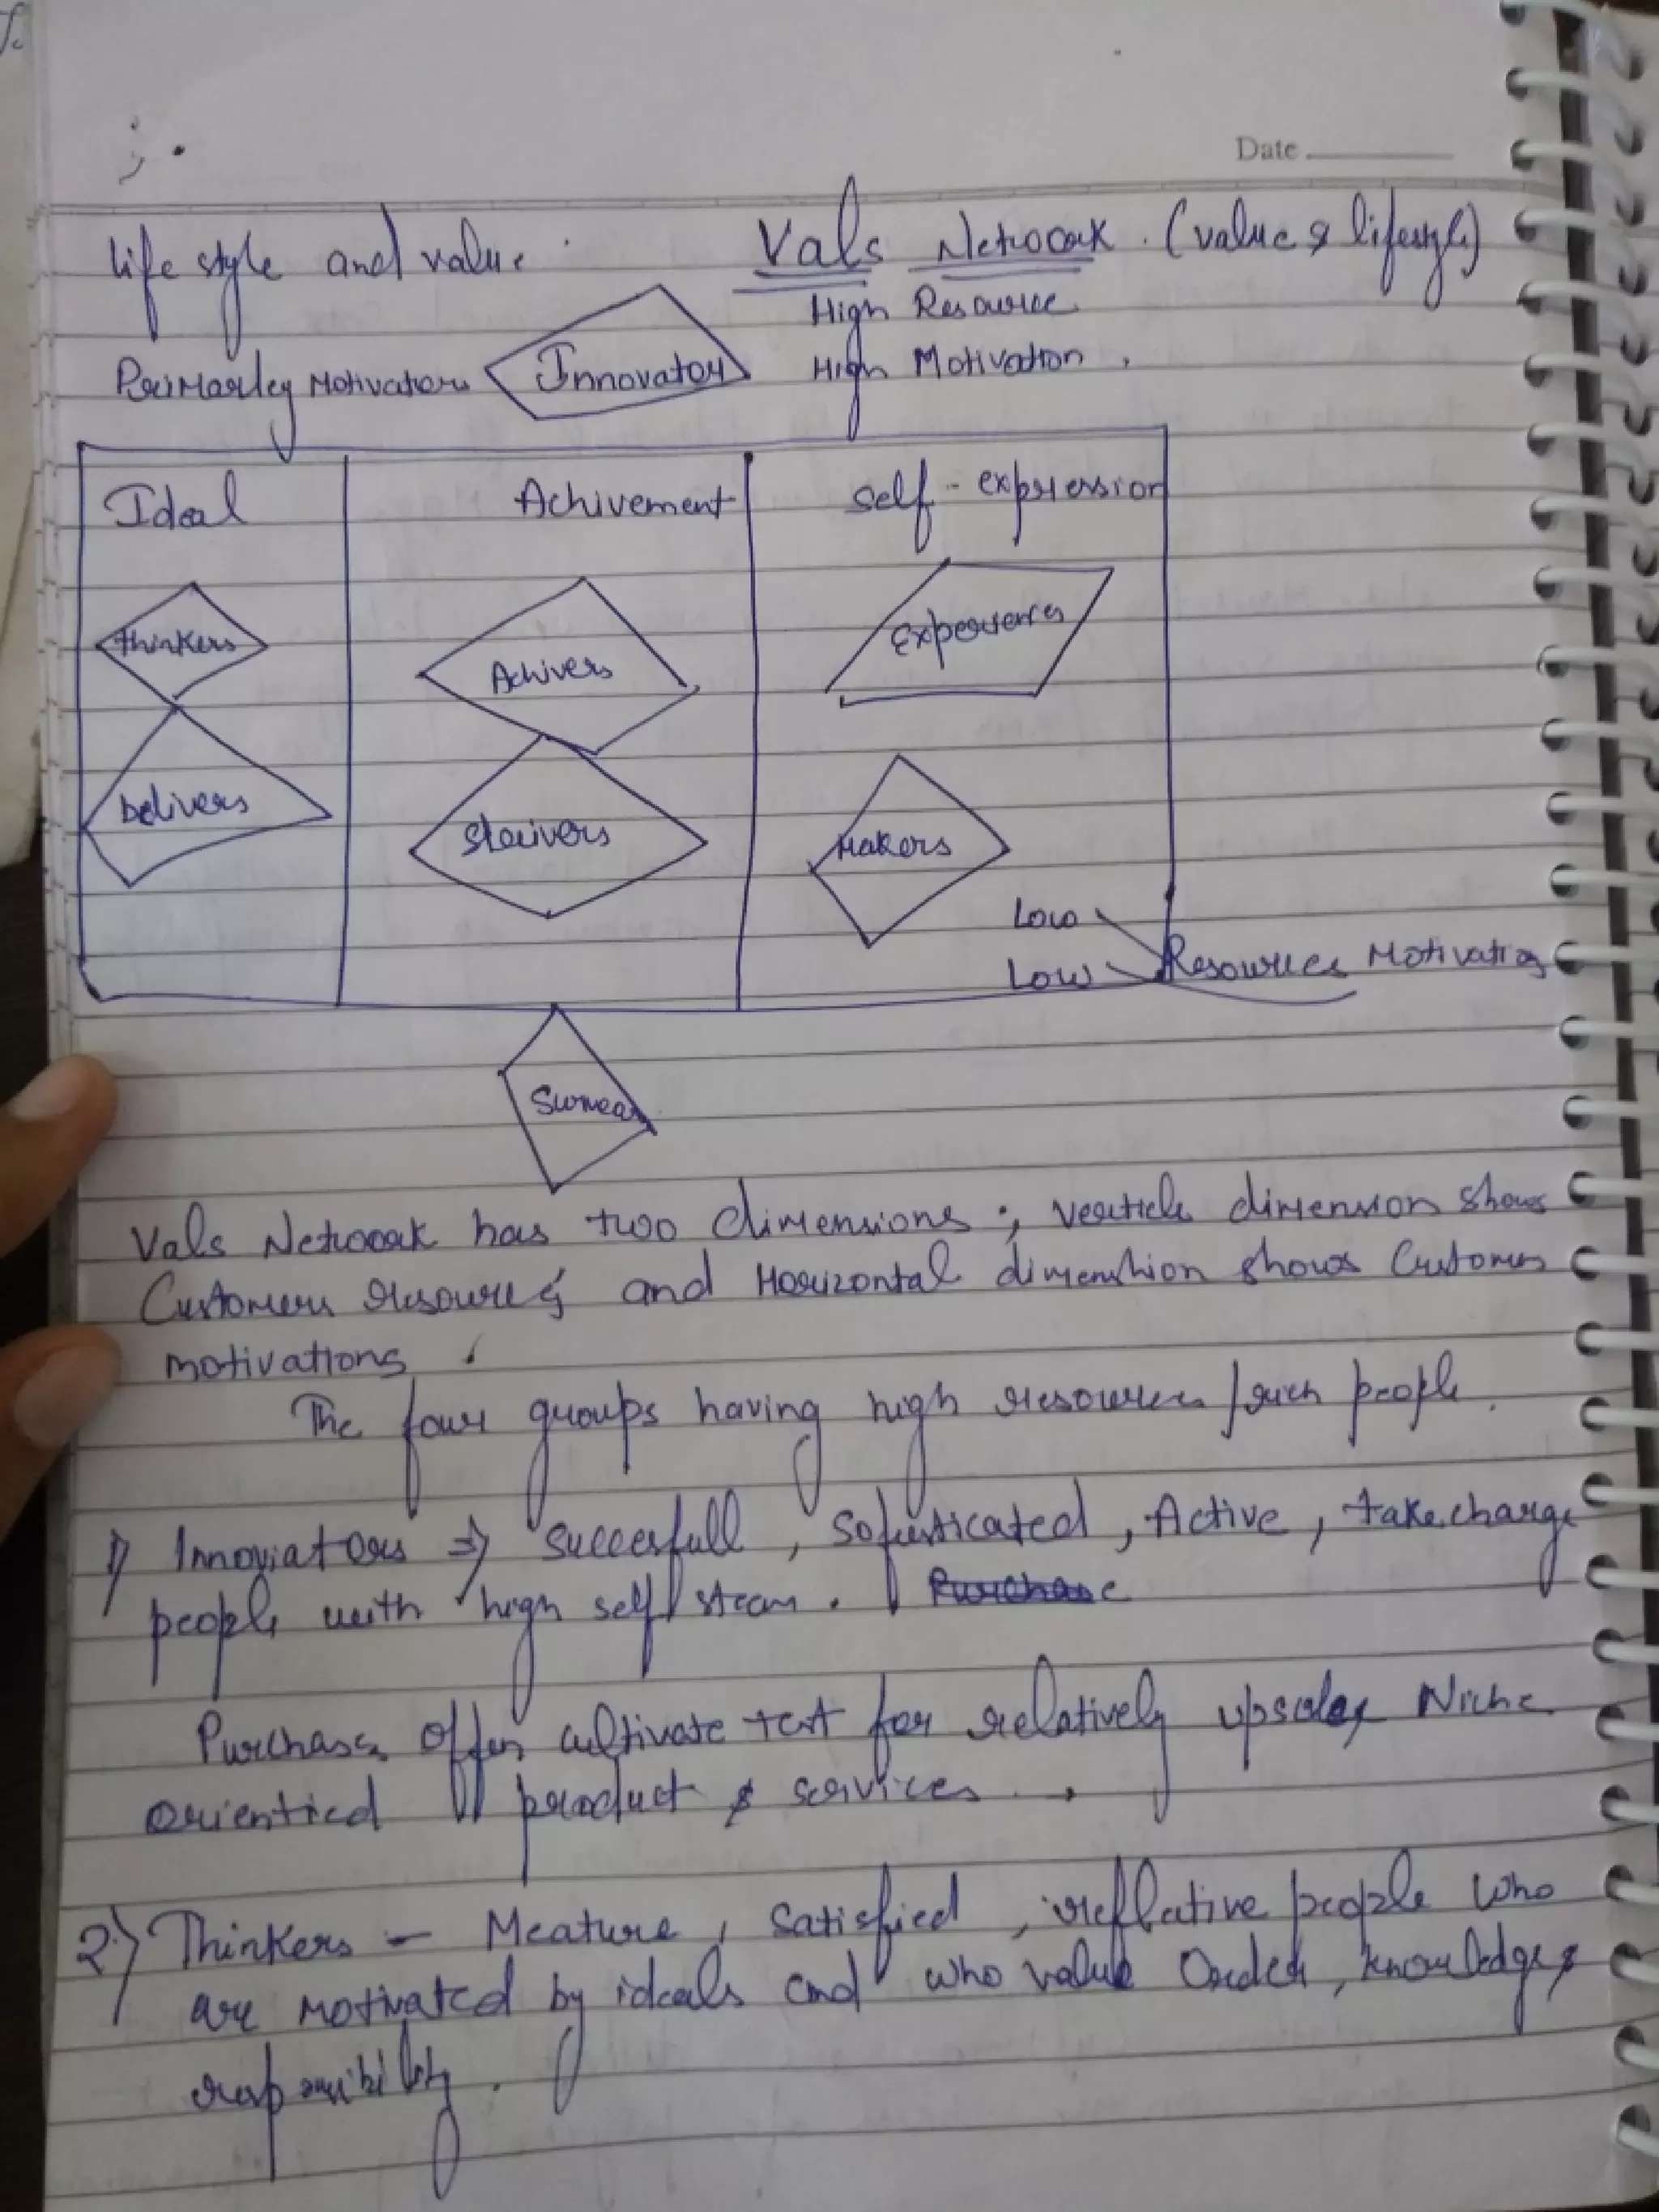 Date
life style and value. Vals Network. (value & lifestyle)
High Resource
Primarley Motivation Innovator High Motivation.
Ideal Achivement Self-expression
thinkers Achivers Experiences
belivers Strivers Makers
Low
Low Resources Motivation
Vals Network has two dimensions; verticle dimension shows
Customers resources and Horizontal dimenshion shows Customers
motivations.
The four groups having high resources / rich people.
1) Innoviators ⇒ Succesfull, Sofisticated, Active, take charge
people with high self steam.
Purchases often cultivate test for relatively upscale Niche
orientied product & services.
2) Thinkers - Meature, Satisfied, reflative people who
are motivated by ideals and who value Order, knowledge &
responsibility.